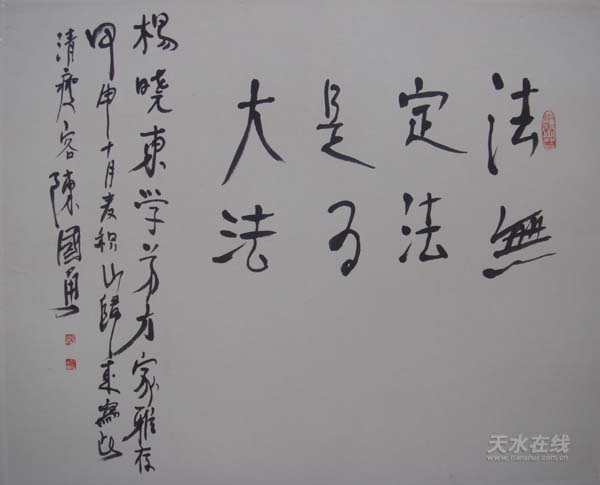 法無
定法
是为
大法
杨晓東学芳方家雅存
甲申十月麦积山歸来寫此
清瘦客陳國勇
天水在线
www.tianshui.com.cn